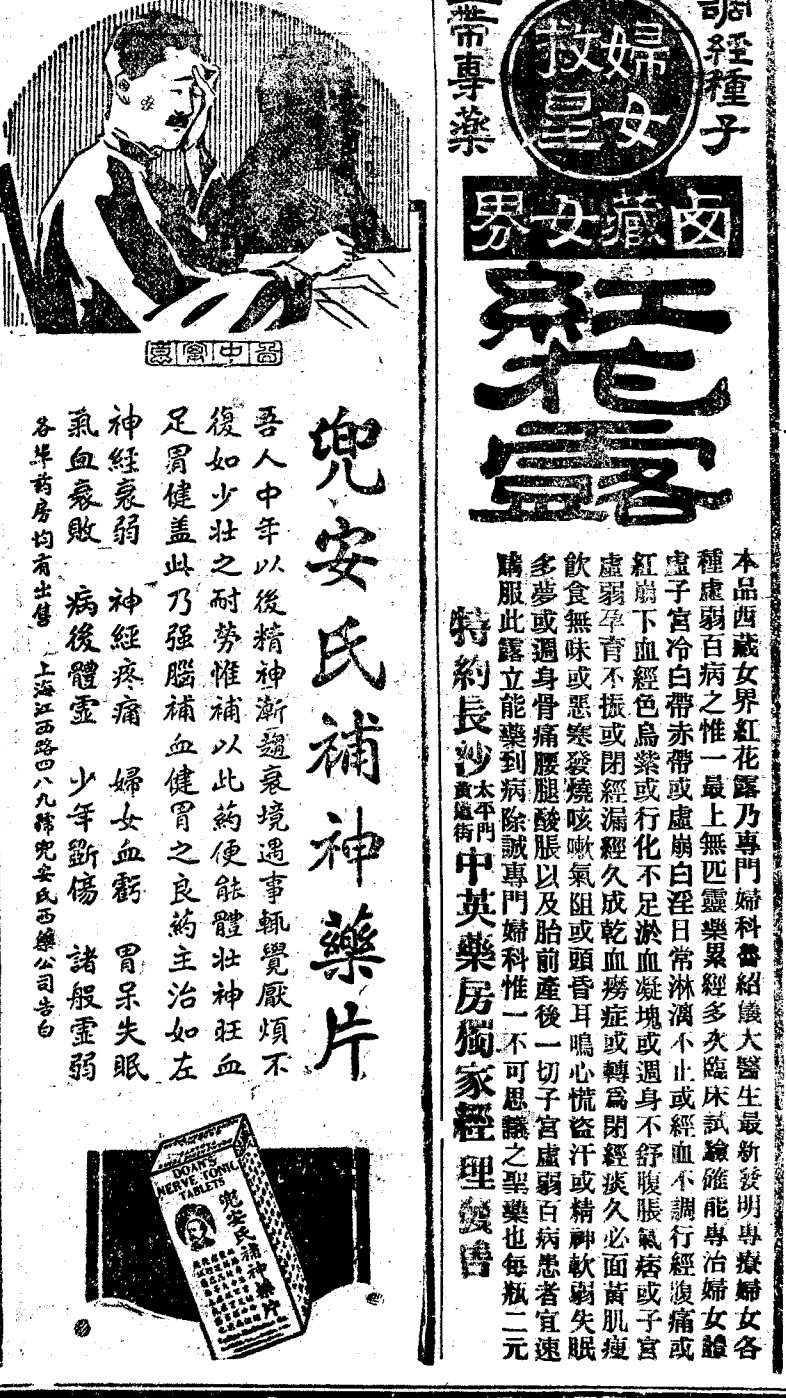 調經種子
婦女
救星
帶專藥
西藏女界
紅花露
本品西藏女界紅花露乃專門婦科魯紹儀大醫生最新發明專療婦女各
種虛弱百病之惟一最上無匹靈藥累經多次臨床試驗確能專治婦女體
虛子宮冷白帶赤帶或虛崩白淫日常淋漓不止或經血不調行經腹痛或
紅崩下血經色烏紫或行化不足淤血凝塊或週身不舒腹脹氣痞或子宮
虛弱孕育不振或閉經漏經久成乾血癆症或轉為閉經痰久必面黃肌瘦
飲食無味或惡寒發燒咳嗽氣阻或頭昏耳鳴心慌盜汗或精神軟弱失眠
多夢或週身骨痛腰腿酸脹以及胎前產後一切子宮虛弱百病患者宜速
購服此露立能藥到病除誠專門婦科惟一不可思議之聖藥也每瓶二元
特約長沙太平門黃道街中英藥房獨家經理發售
兜安氏補神藥片
吾人中年以後精神漸趨衰境遇事輒覺厭煩不
復如少壯之耐勞惟補以此葯便能體壯神旺血
足胃健盖此乃强腦補血健胃之良葯主治如左
神經衰弱 神經疼痛 婦女血虧 胃呆失眠
氣血衰敗 病後體虛 少年斵傷 諸般虛弱
各埠葯房均有出售 上海江西路四八九號兜安氏西藥公司告白
DOAN'S
NERVE TONIC
TABLETS
兜安氏補神藥片